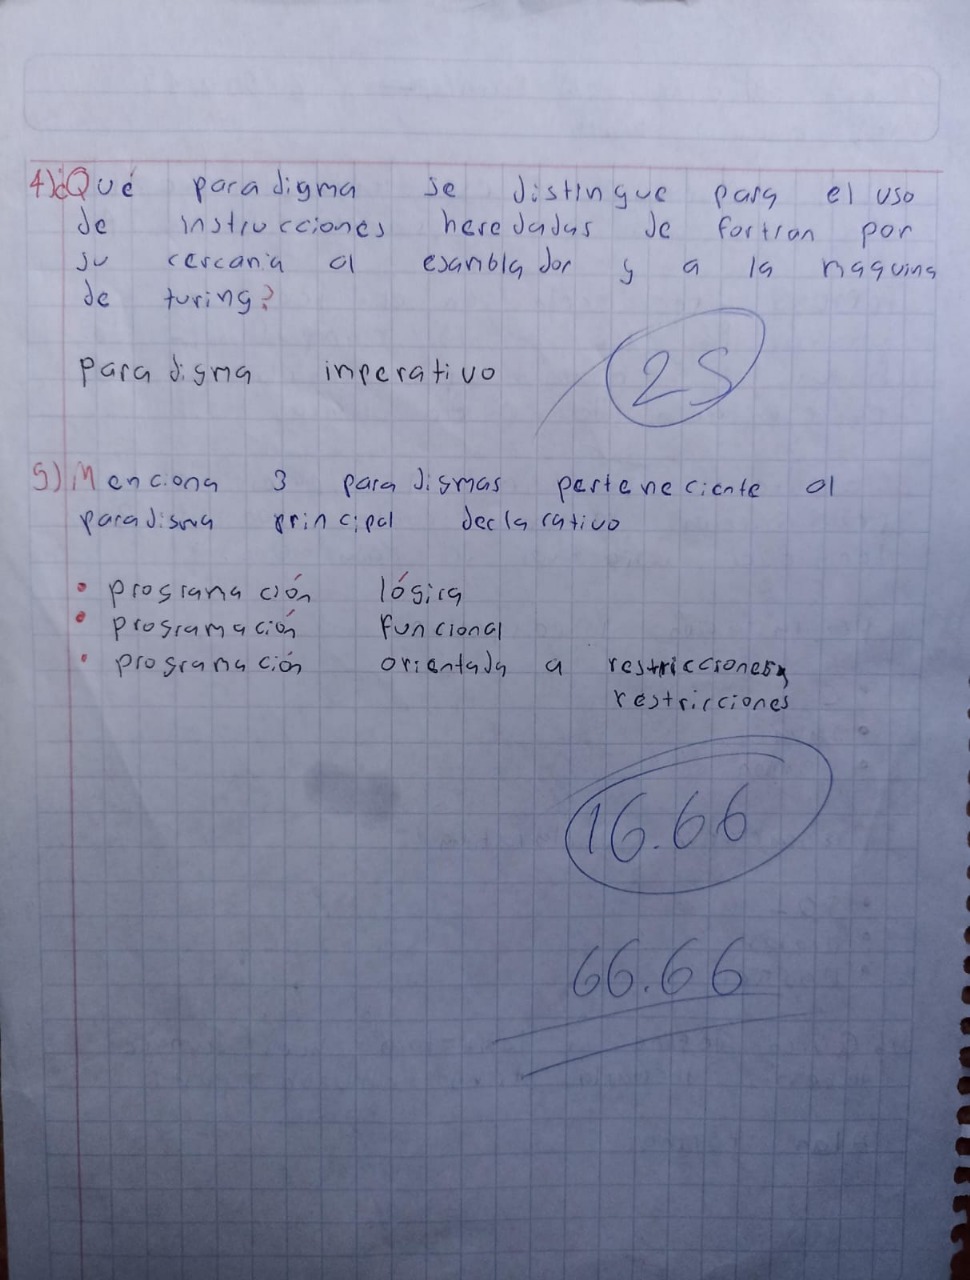 4)¿Qué paradigma se distingue para el uso
de instrucciones heredadas de fortran por
su cercania al esamblador y a la maquina
de turing?
paradigma imperativo
25
5) Menciona 3 paradismas perteneciente al
paradisma principal declarativo
• programación lógica
• programación funcional
• programación orientada a restricciones
restricciones
16.66
66.66